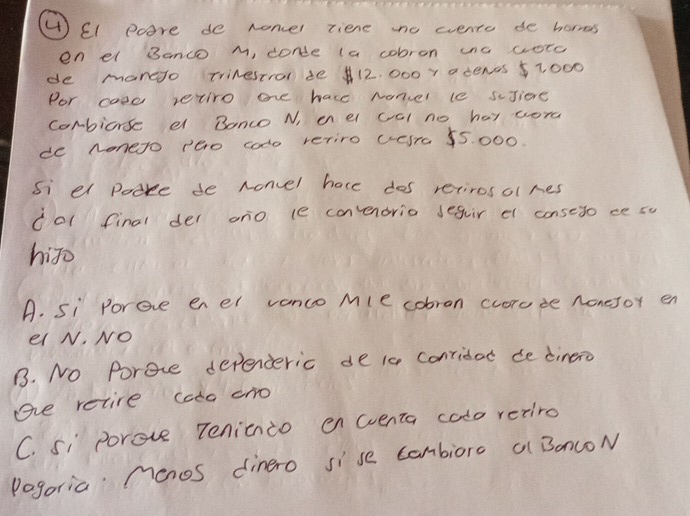 ④ El Padre de Manuel tiene una cuenta de horros
en el Banco M, donde la cobran una cuota
de manejo trimestral de $12.000 y ademas $2.000
Por cada retiro que hace Manuel le sujiere
cambiarse el Banco N, en el cual no hay cuota
de Manejo pero cada retiro cuesta $5.000.
Si el Padre de Manuel hace dos retiros al Mes
¿al final del año le convendria seguir el consejo de su
hijo
A. Si Porque en el vanco M le cobran cuota de Manejo y en
el N. NO
B. No Porque dependeria de la cantidad de dinero
que retire cada año
C. Si Porque Teniendo en cuenta cada retiro
Pagaria. Menos dinero si se cambiara al Banco N